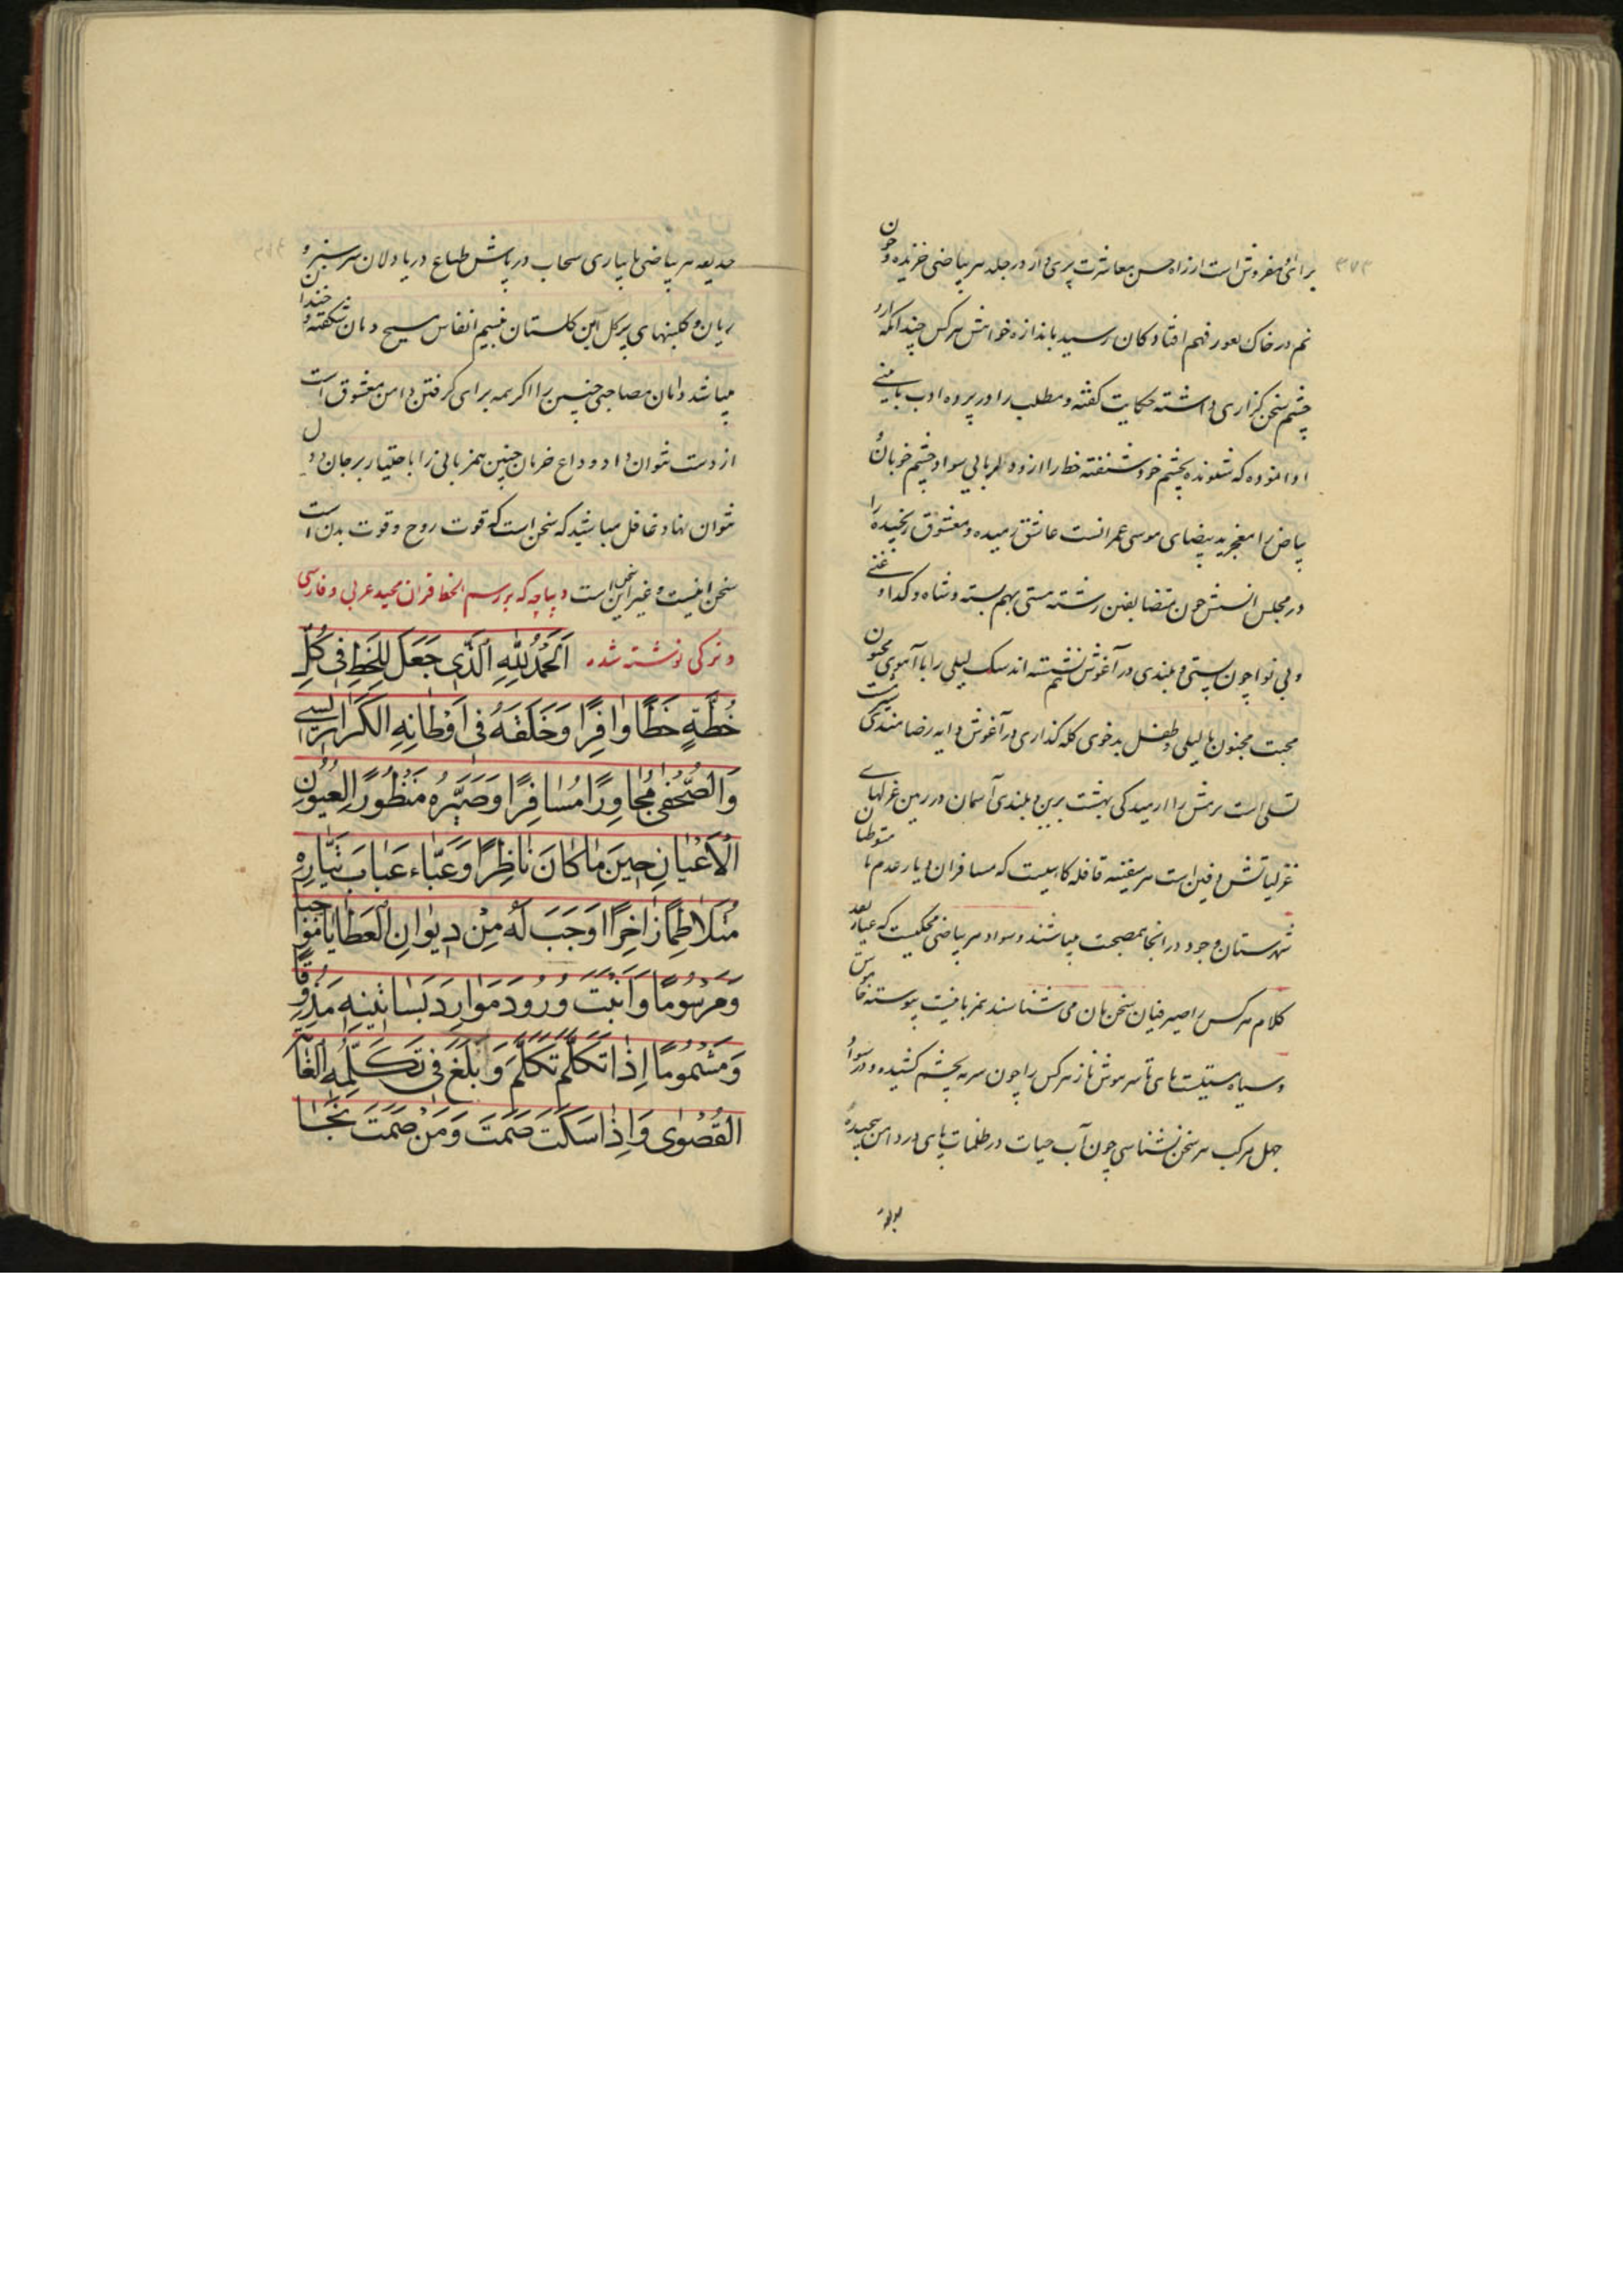 ۳۷۳
برای همفروش است از راه حسن معاشرت پری دار در جلد هر بیاضی خزیده و چون
نم در خاک بعور فهم افتادکان رسیده باندازه خواهش هرکس چندانکه دارو
چشم سخن کزاری داشته حکایت کفته و مطلب را در پرده ادب بآیینی
ادا نموده که شنونده بچشم خود شنفته خط را از روی دلربایی سواد چشم خوبان و
بیاض را معجز ید بیضای موسی عمرانست عاشق رمیده و معشوق رنجیده را
در مجلس انسش چون متضایفین رشته هستی بهم بسته و شاه و کدا و غنی
و بی نوا چون پستی و بلندی در آغوش نشسته اند سک لیلی را با آهوی مجنون
محبت مجنون با لیلی و طفل بدخوی کله کذاری در آغوش دایه رضامندی
تسلی است رمش را ارمیدکی بهشت برین و بلندی آسمان در زمین غزلهای
غزلیاتش دفین است هر سفینه قافله کاهیست که مسافران دیار عدم با متوطنان
شهرستان وجود در آنجا همصحبت میباشند و سواد هر بیاضی محکیست که عیار نقد
کلام هرکس را صیرفیان سخن بان می شناسند همزبانیست پیوسته خاموش
و سیاه مستیست های تا سر هوش ناز نرکس را چون سرمه بچشم کشیده و در سواد
جهل مرکب هر سخن نشناسی چون آب حیات در ظلمات پای در دامن پیچیده
حدیقه هر بیاضی بابیاری سحاب درپاش طباع دریادلان سرسبز و
ریان و کلبنهای پرکل این کلستان بنسیم انفاس مسیح دمان شکفته و خندان
میباشد دامان مصاحبی چنین را اکر همه برای کرفتن دامن معشوق است
از دست نتوان داد و داع حرمان چنین همزبانی را باختیار بر جان و دل
نتوان نهاد غافل مباشید که سخن است که قوت روح و قوت بدن است
سخن اینست و غیر این سخن است دیباچه که برسم الخط قران مجید عربی و فارسی
و ترکی نوشته شده اَلحَمدُ لِلّٰهِ الَّذی جَعَلَ لِلخَطِّ فی کُلِّ
خُطَّةٍ حَظًّا وافِرًا وَخَلَقَهُ فی اَوطانِهِ الکَراریسِ
وَالصُّحُفِ مُجاوِرًا مُسافِرًا وَصَیَّرَهُ مَنظُورًا لِعُیُونِ
الاَعیانِ حینَ ما کانَ ناظِرًا وَعَبَّاءَ عَبابَ تَیّارِهِ
مُتَلاطِمًا زاخِرًا اَوجَبَ لَهُ مِن دیوانِ العَطایا مَواجِبا
وَمَرسُومًا وَاَنبَتَ وُرُودَ مَوارِدَ بَساتینِهِ مَذُوقًا
وَمَشمُومًا اِذا تَکَلَّمَ تَکَلَّمَ وَاَبلَغَ فی تَکَلُّمِهِ الغایَة
القُصوی وَاِذا سَکَتَ صَمَتَ وَمَن صَمَتَ نَجا